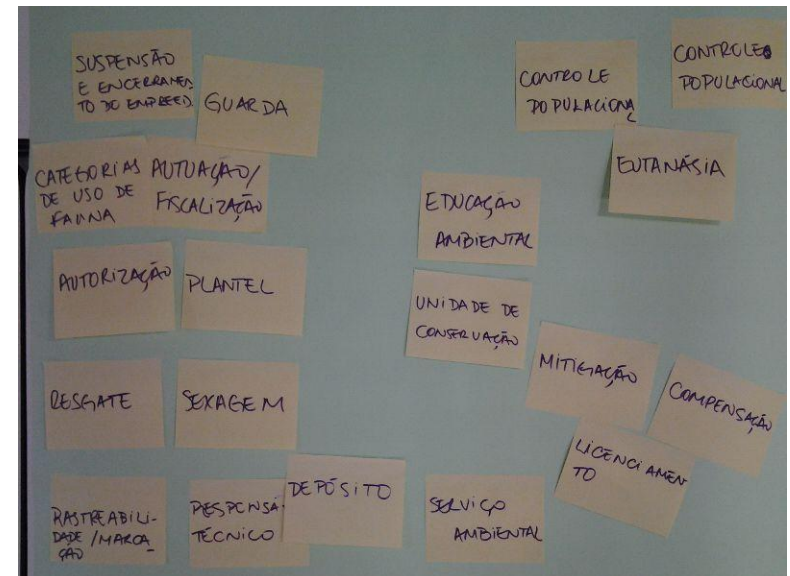 SUSPENSÃO
E ENCERRAMEN-
TO DO EMPREED.
GUARDA
CATEGORIAS
DE USO DE
FAUNA
AUTUAÇÃO/
FISCALIZAÇÃO
AUTORIZAÇÃO
PLANTEL
RESGATE
SEXAGEM
RASTREABILI-
DADE/MARCA
ÇÃO
RESPONSÁ-
TÉCNICO
DEPÓSITO
CONTROLE
POPULACIONAL
CONTROLE
POPULACIONAL
EUTANÁSIA
EDUCAÇÃO
AMBIENTAL
UNIDADE DE
CONSERVAÇÃO
MITIGAÇÃO
COMPENSAÇÃO
LICENCIAMEN-
TO
SERVIÇO
AMBIENTAL